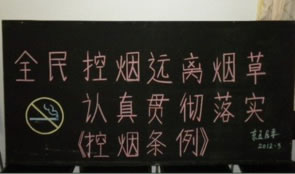 全民控烟远离烟草
认真贯彻落实
《控烟条例》
2012.5